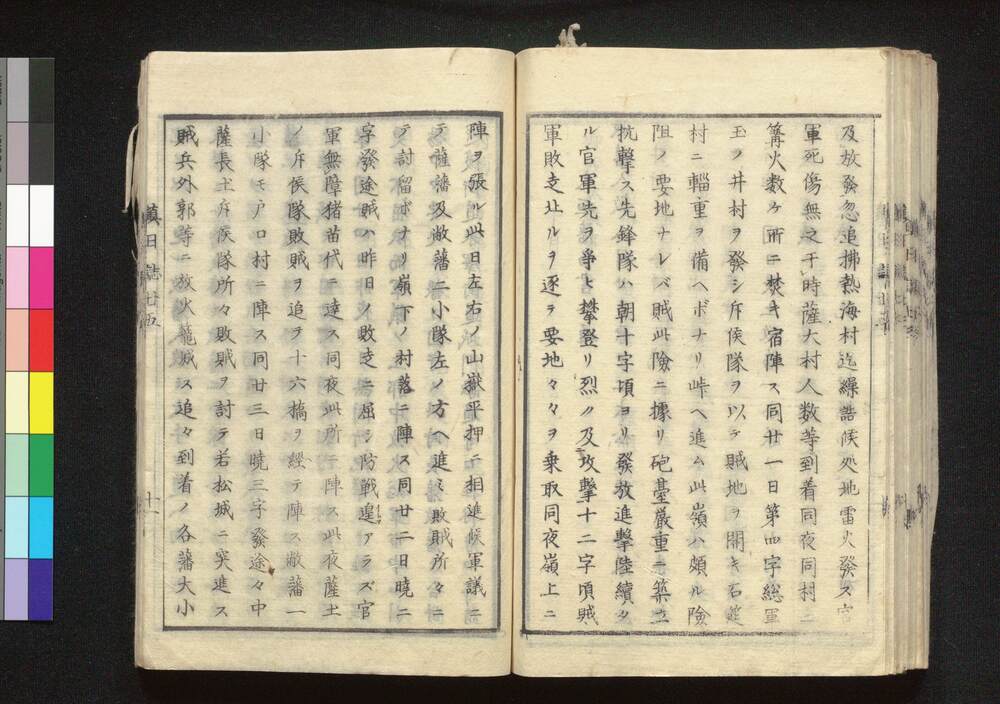 及放發忽追拂熱海村迄繰詰候処地雷火發ス官
軍死傷無之于時薩大村人数等到着同夜同村ニ
篝火数ヶ所ニ焚キ宿陣ス同廿一日第四字総軍
玉ノ井村ヲ發シ斥候隊ヲ以テ賊地ヲ開キ石筵
村ニ輜重ヲ備ヘボナリ峠ヘ進ム此嶺ハ頗ル險
阻ノ要地ナレバ賊此險ニ據リ砲臺嚴重ニ築立
抗擊ス先鋒隊ハ朝十字頃ヨリ發放進擊陸續タ
ル官軍先ヲ爭ヒ攀登リ烈ク及攻擊十二字頃賊
軍敗走北ルヲ逐テ要地々々ヲ乗取同夜嶺上ニ
陣ヲ張ル此日左右ノ山嶽平押ニ相進候軍議ニ
テ薩藩及敝藩二小隊左ノ方ヘ進ミ敗賊所々ニ
テ討留ボナリ嶺下ノ村落ニ陣ス同廿二日曉二
字發途賊ハ昨日ノ敗走ニ屈シ防戦遑アラズ官
軍無障猪苗代ニ達ス同夜此所ニ陣ス此夜薩土
ノ斥候隊敗賊ヲ追ヲ十六橋ヲ經テ陣ス敝藩一
小隊モ戸ロ村ニ陣ス同廿三日曉三字發途々中
薩長土斥候隊所々敗賊ヲ討テ若松城ニ突進ス
賊兵外郭等ニ放火籠城ス追々到着ノ各藩大小
鎮日誌廿五
十一